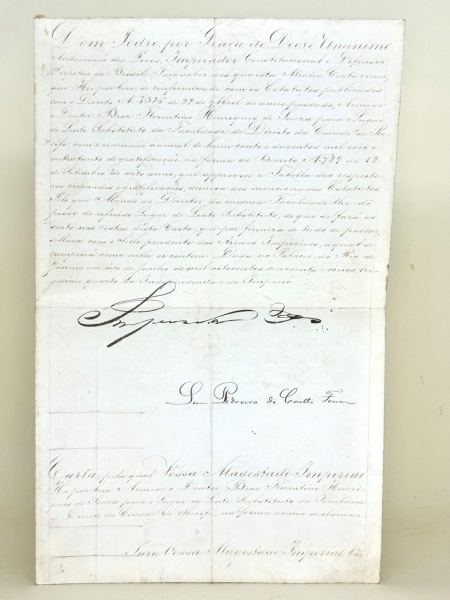 Dom Pedro por Graça de Deos e Unanime
Acclamação dos Povos, Imperador Constitucional e Defensor
Perpetuo do Brasil. Faço saber aos que esta Minha Carta virem
que Hei por bem, de conformidade com os Estatutos publicados
com o Decreto Nº de 28 de Abril do anno passado, Nomear
o Doutor Braz Florentino Henriques de Souza para o Lugar
de Lente Substituto da Faculdade de Direito da Cidade do Re-
cife, com o ordenado annual de hum conto e duzentos mil reis e
oitocentos de gratificação na forma do Decreto Nº de 12
de Setembro do dito anno, que approvou a Tabella dos respecti-
vos ordenados e gratificações, annexa aos mencionados Estatutos
Pelo que Mando ao Director da mesma Faculdade lhe dê
posse do referido Lugar de Lente Substituto, de que se fará as-
sento nas costas desta Carta, que por firmeza de tudo do passar,
e Minha com o Sello pendente das Armas Imperiaes, a qual se
cumprirá como nella se contém. Dada no Palacio do Rio de
Janeiro em oito de Junho de mil oitocentos e cincoenta e cinco, tri-
gesimo quarto da Independencia e do Imperio
Imperador
Luiz Pedreira do Coutto Ferraz
Carta, pela qual Vossa Magestade Imperial
Ha por bem Nomear o Doutor Braz Florentino Henri-
ques de Souza para o Lugar de Lente Substituto da Faculdade
de Direito da Cidade do Recife, na forma acima declarada
Para Vossa Magestade Imperial Ver